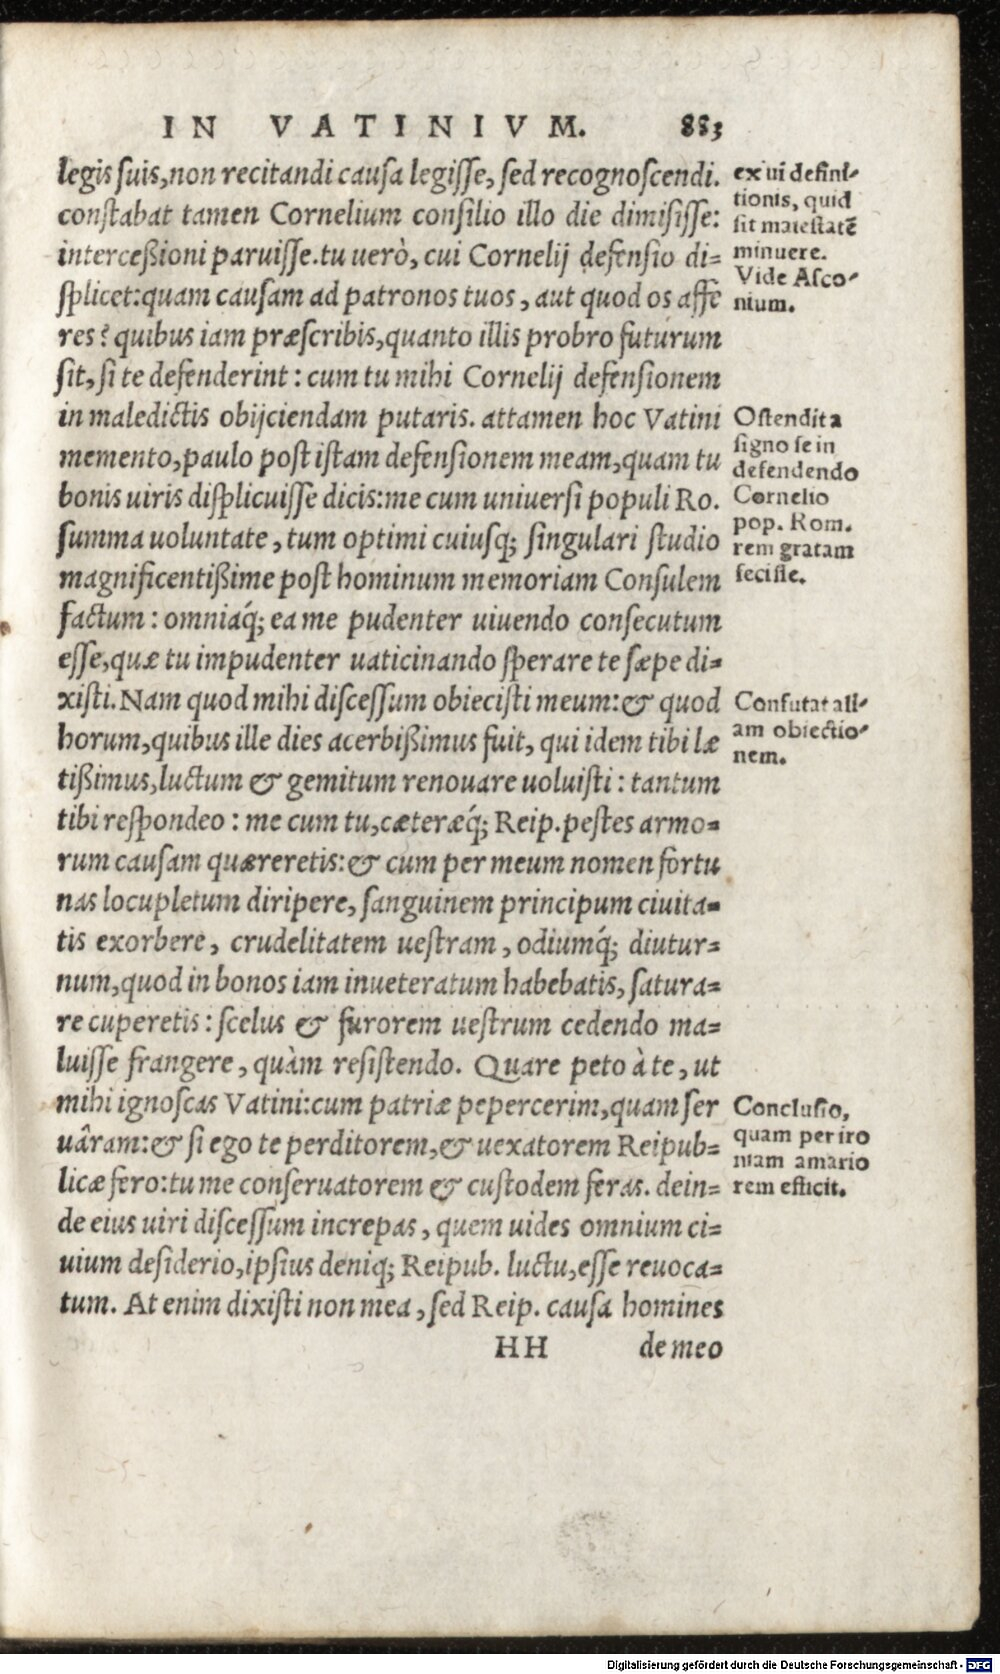 IN VATINIVM. 883
legis suis,non recitandi causa legisse, sed recognoscendi.
constabat tamen Cornelium consilio illo die dimisisse:
interceßioni paruisse.tu uerò, cui Cornelij defensio di=
splicet:quam causam ad patronos tuos, aut quod os affe
res? quibus iam præscribis,quanto illis probro futurum
sit, si te defenderint: cum tu mihi Cornelij defensionem
in maledictis obijciendam putaris. attamen hoc Vatini
memento,paulo post istam defensionem meam,quam tu
bonis uiris displicuisse dicis:me cum uniuersi populi Ro.
summa uoluntate, tum optimi cuiusq; singulari studio
magnificentißime post hominum memoriam Consulem
factum: omniaq́; ea me pudenter uiuendo consecutum
esse,quæ tu impudenter uaticinando sperare te sæpe di=
xisti. Nam quod mihi discessum obiecisti meum:& quod
horum,quibus ille dies acerbißimus fuit, qui idem tibi læ
tißimus,luctum & gemitum renouare uoluisti: tantum
tibi respondeo: me cum tu,cæteræq́; Reip.pestes armo=
rum causam quæreretis:& cum per meum nomen fortu
nas locupletum diripere, sanguinem principum ciuita=
tis exorbere, crudelitatem uestram, odiumq́; diutur=
num,quod in bonos iam inueteratum habebatis, satura=
re cuperetis: scelus & furorem uestrum cedendo ma=
luisse frangere, quàm resistendo. Quare peto à te, ut
mihi ignoscas Vatini:cum patriæ pepercerim,quam ser
uâram:& si ego te perditorem,& uexatorem Reipub=
licæ fero:tu me conseruatorem & custodem feras. dein=
de eius uiri discessum increpas, quem uides omnium ci=
uium desiderio,ipsius deniq; Reipub. luctu,esse reuoca=
tum. At enim dixisti non mea, sed Reip. causa homines
HH de meo
ex ui defini-
tionis, quid
sit maiestatē
minuere.
Vide Asco-
nium.
Ostendit a
signo se in
defendendo
Cornelio
pop. Rom.
rem gratam
fecisse.
Confutat ali-
am obiectio-
nem.
Conclusio,
quam per iro
niam amario
rem efficit.
Digitalisierung gefördert durch die Deutsche Forschungsgemeinschaft - DFG